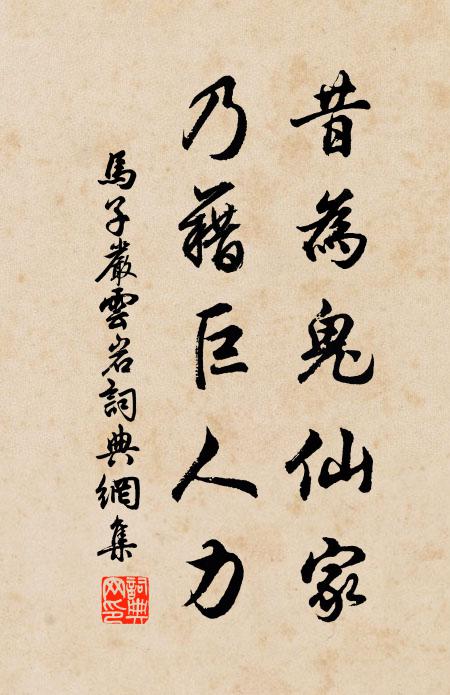 昔為鬼仙家
乃藉巨人力
馬子嚴雲岩詞典網集
詞典网印